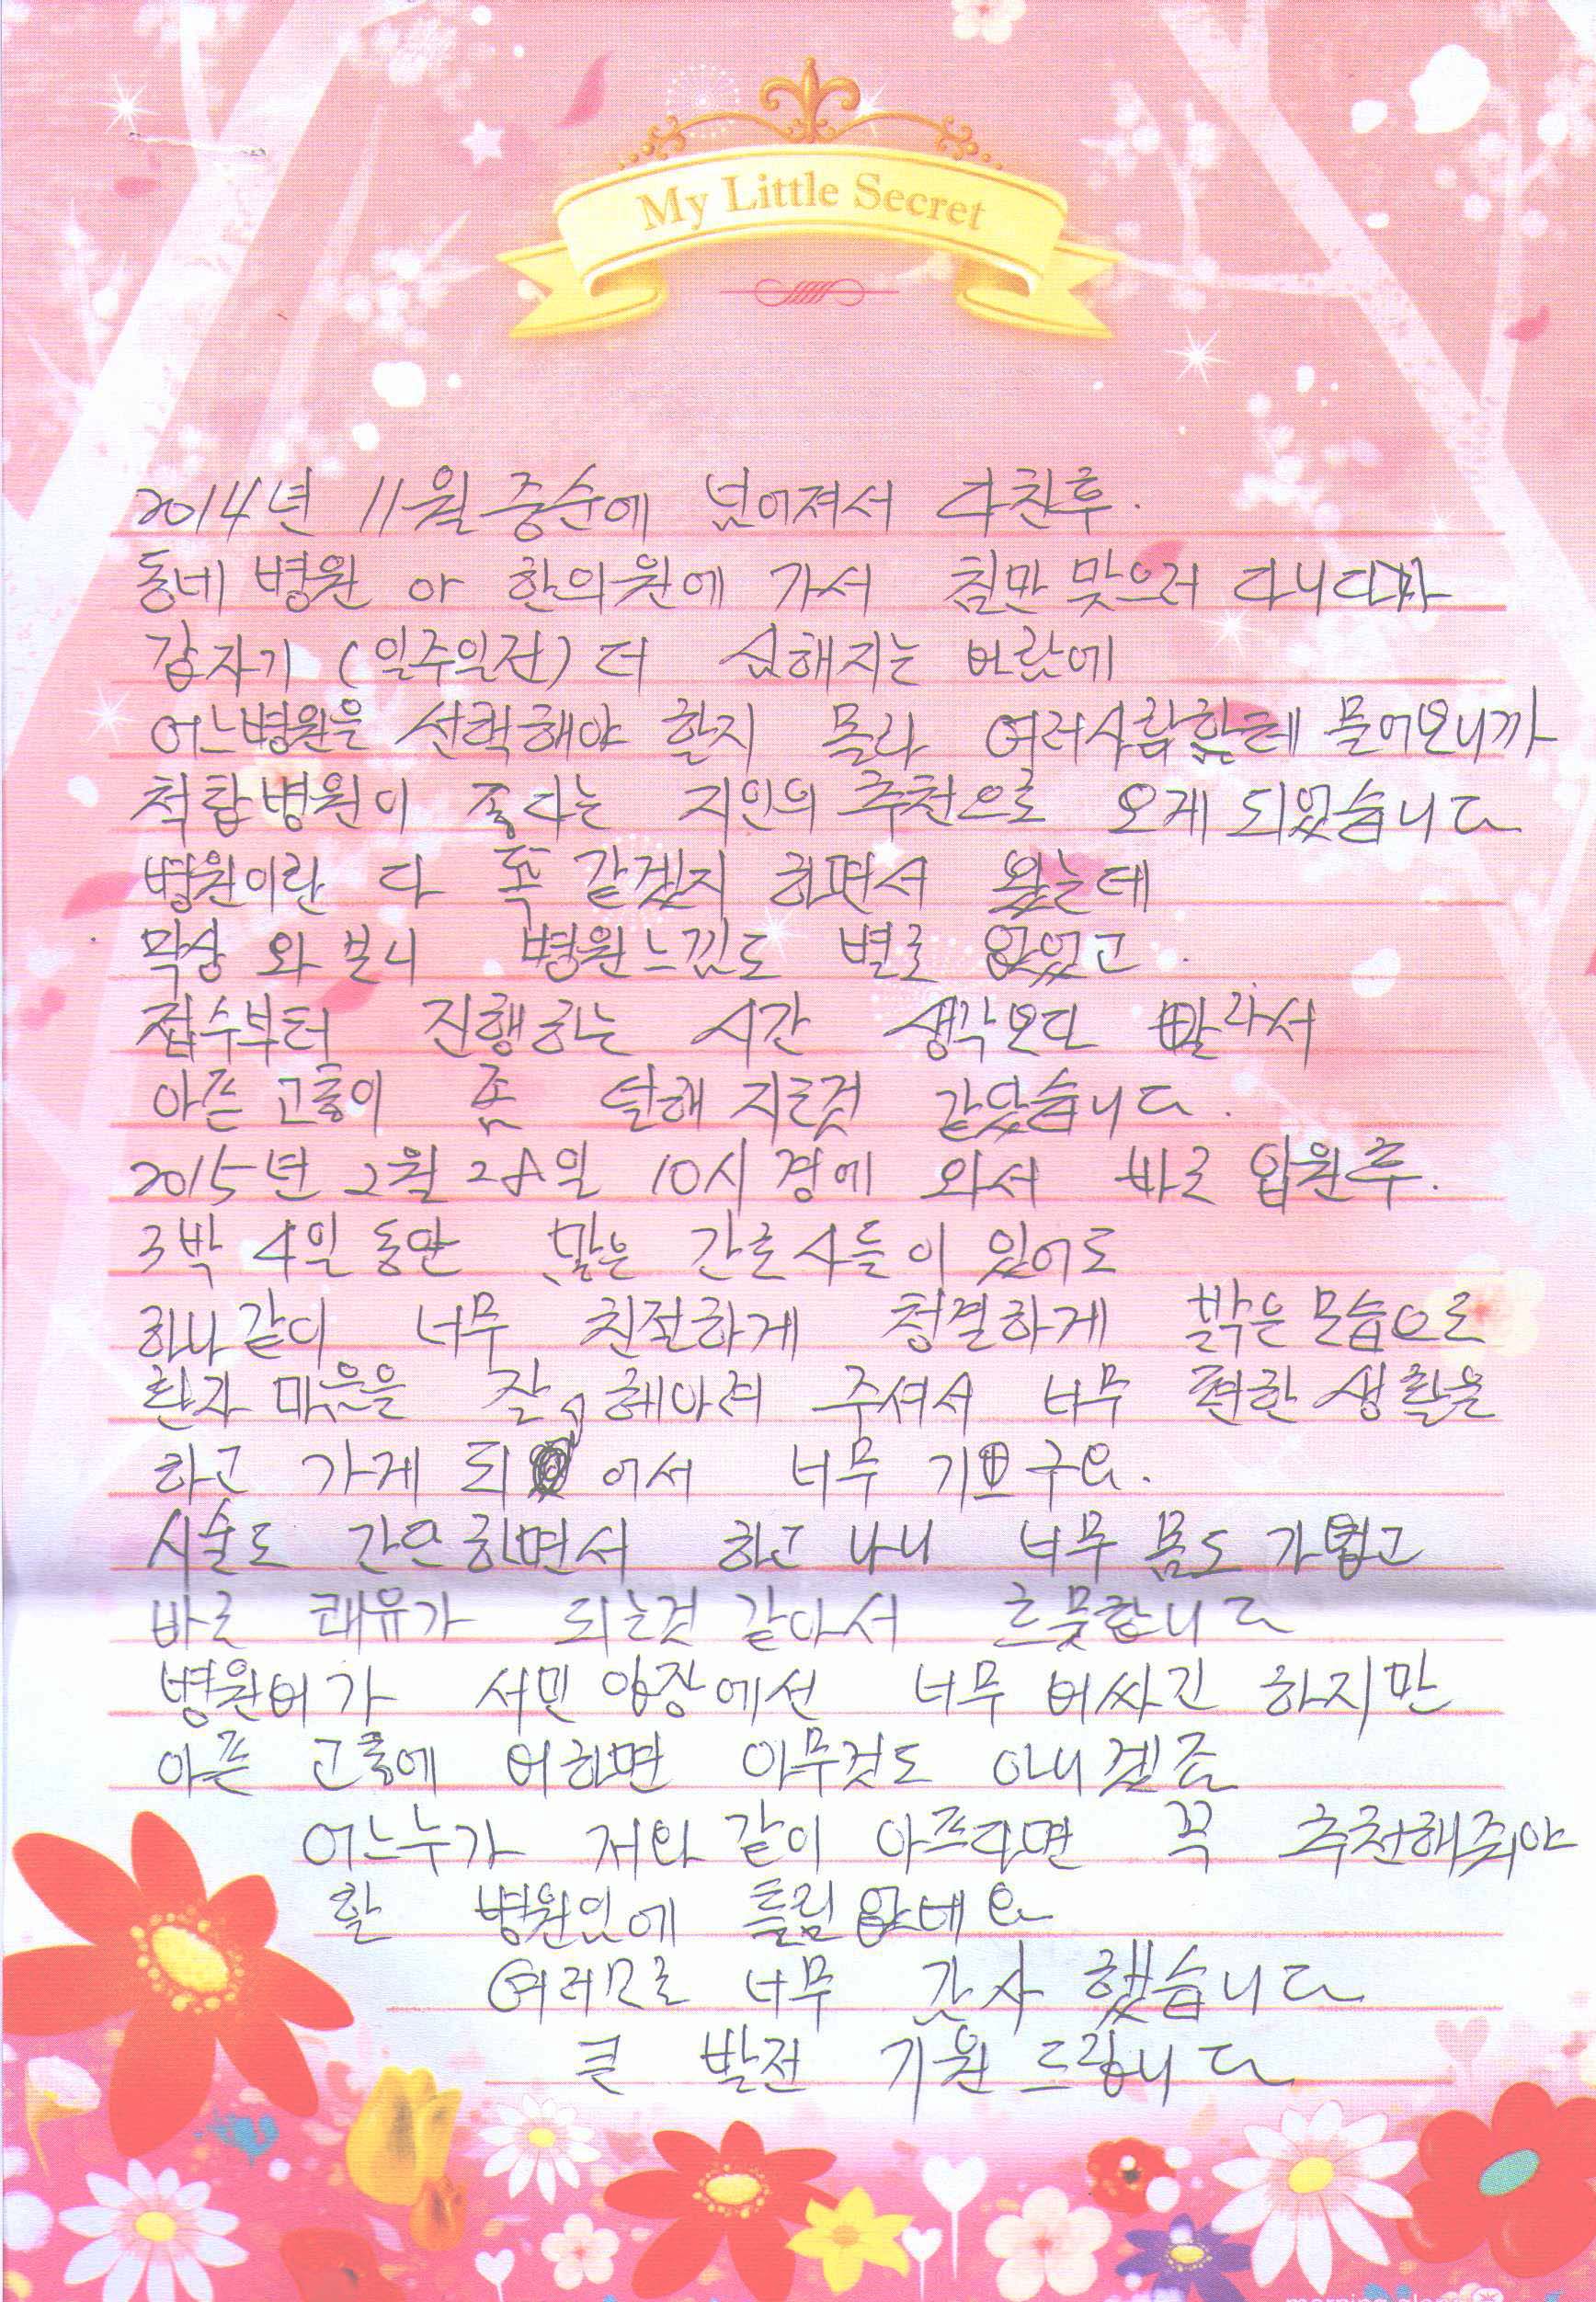 My Little Secret
2014년 11월 중순에 넘어져서 다친후.
동네 병원 아 한의원에 가서 침만 맞으러 다니다가
갑자기 (일주일전) 더 심해지는 바람에
어느병원을 선택해야 할지 몰라 여러사람한테 물어보니까
척탑병원이 좋다는 지인의 추천으로 오게 되었습니다
병원이란 다 똑 같겠지 하면서 왔는데
막상 와 보니 병원느낌도 별로 없었고.
접수부터 진행하는 시간 생각보다 빨라서
아픈 고통이 좀 덜해 지른것 같았습니다.
2015년 2월 28일 10시경에 와서 바로 입원후.
3박 4일 동안 많은 간호사들이 있어도
하나같이 너무 친절하게 청결하게 밝은 모습으로
환자 마음을 잘 헤아려 주셔서 너무 편한 생활을
하고 가게 되어서 너무 기쁘구요.
시술도 간단하면서 하고 나니 너무 몸도 가볍고
바로 쾌유가 되는것 같아서 흐뭇합니다
병원비가 서민 입장에선 너무 비싸긴 하지만
아픈 고통에 비하면 아무것도 아니겠죠
어느누가 저와 같이 아프다면 꼭 추천해줘야
할 병원임에 틀림없네요
여러모로 너무 감사 했습니다
큰 발전 기원 드립니다